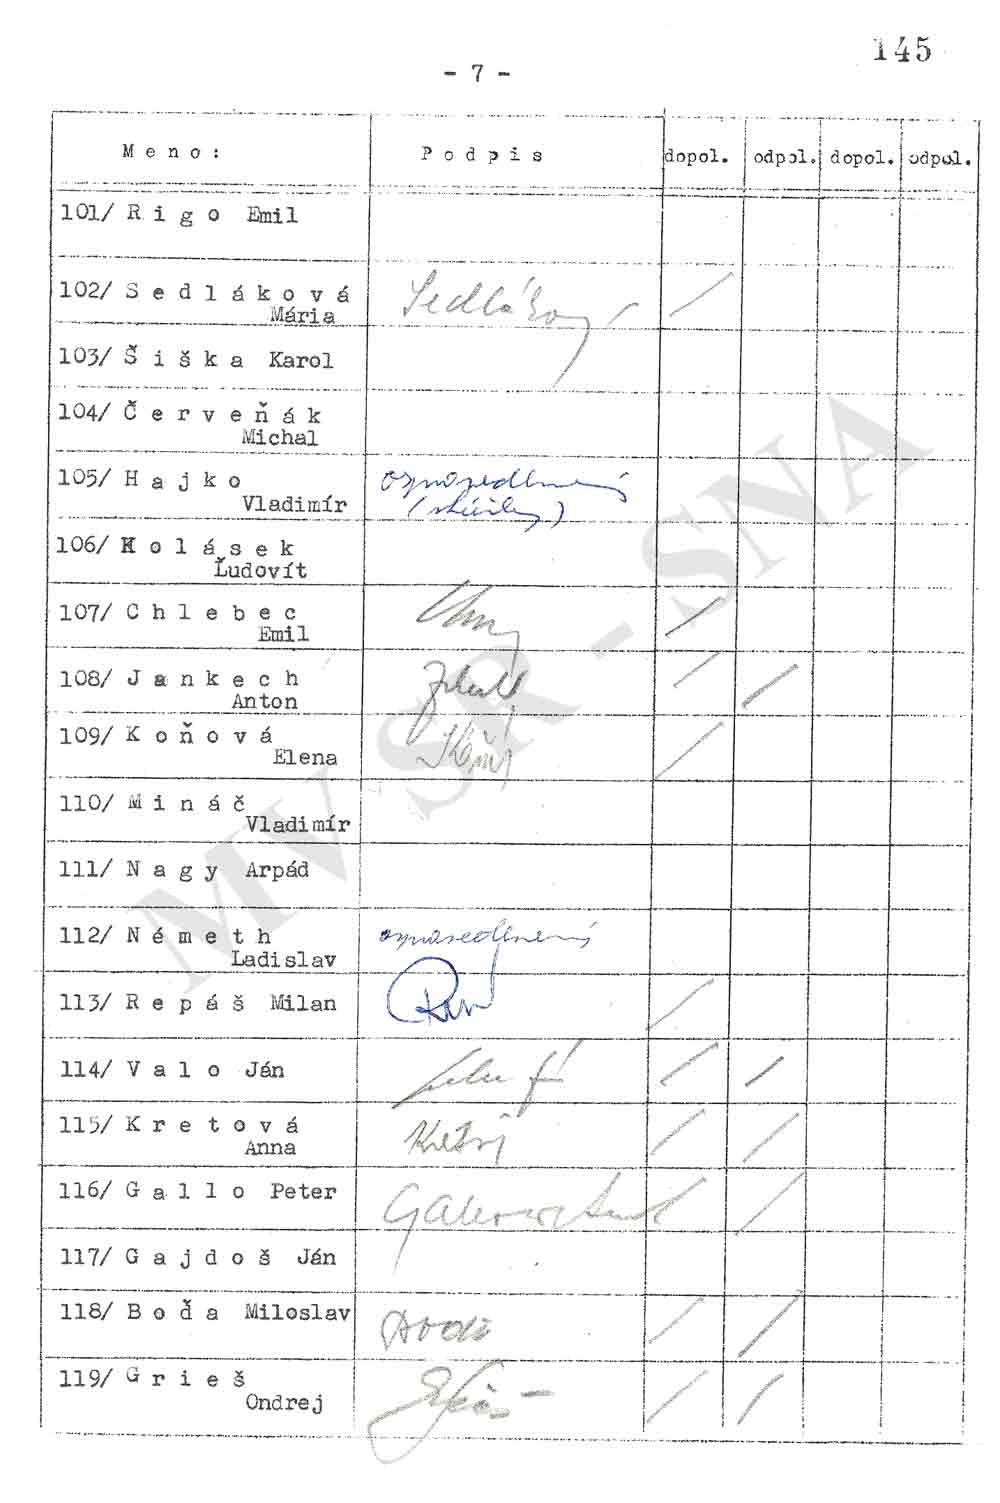 145
- 7 -
Meno: Podpis dopol. odpol. dopol. odpol.
101/ Rigo Emil
102/ Sedláková
Mária
103/ Šiška Karol
104/ Červeňák
Michal
105/ Hajko ospravedlnený
Vladimír
106/ Kolásek
Ľudovít
107/ Chlebec
Emil
108/ Jankech
Anton
109/ Koňová
Elena
110/ Mináč
Vladimír
111/ Nagy Arpád
112/ Németh ospravedlnený
Ladislav
113/ Repáš Milan
114/ Valo Ján
115/ Kretová
Anna
116/ Gallo Peter
117/ Gajdoš Ján
118/ Boďa Miloslav
119/ Grieš
Ondrej
MV SR - SNA